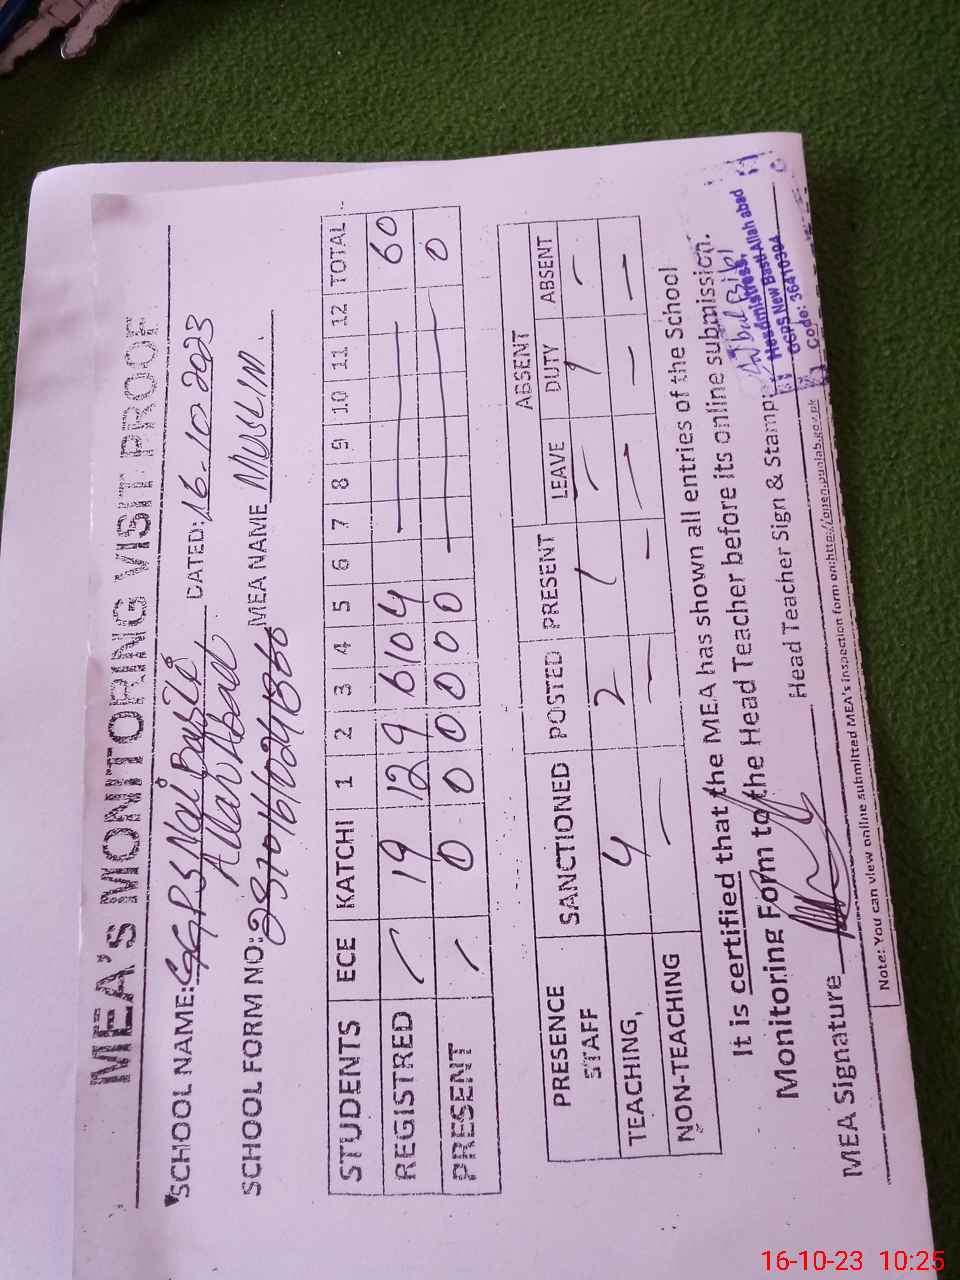 MEA's MONITORING VISIT PROOF
SCHOOL NAME: GGPS Nai Basti DATED: 16-10-2023
Allah Abad
SCHOOL FORM NO: MEA NAME MUSLIM.
STUDENTS ECE KATCHI 1 2 3 4 5 6 7 8 9 10 11 12 TOTAL
REGISTRED / 19 12 9 6 10 4 — 60
PRESENT / 0 0 0 0 0 0 — 0
ABSENT
PRESENCE SANCTIONED POSTED PRESENT LEAVE DUTY ABSENT
STAFF
TEACHING, 4 2 1 – 1 –
NON-TEACHING — — — — — —
It is certified that the MEA has shown all entries of the School
Monitoring Form to the Head Teacher before its online submission.
MEA Signature Head Teacher Sign & Stamp:
Headmistress,
GGPS New Basti Allah abad
Code: 36410394
Note: You can view online submitted MEA's inspection form on:http://open.punjab.gov.pk
16-10-23 10:25